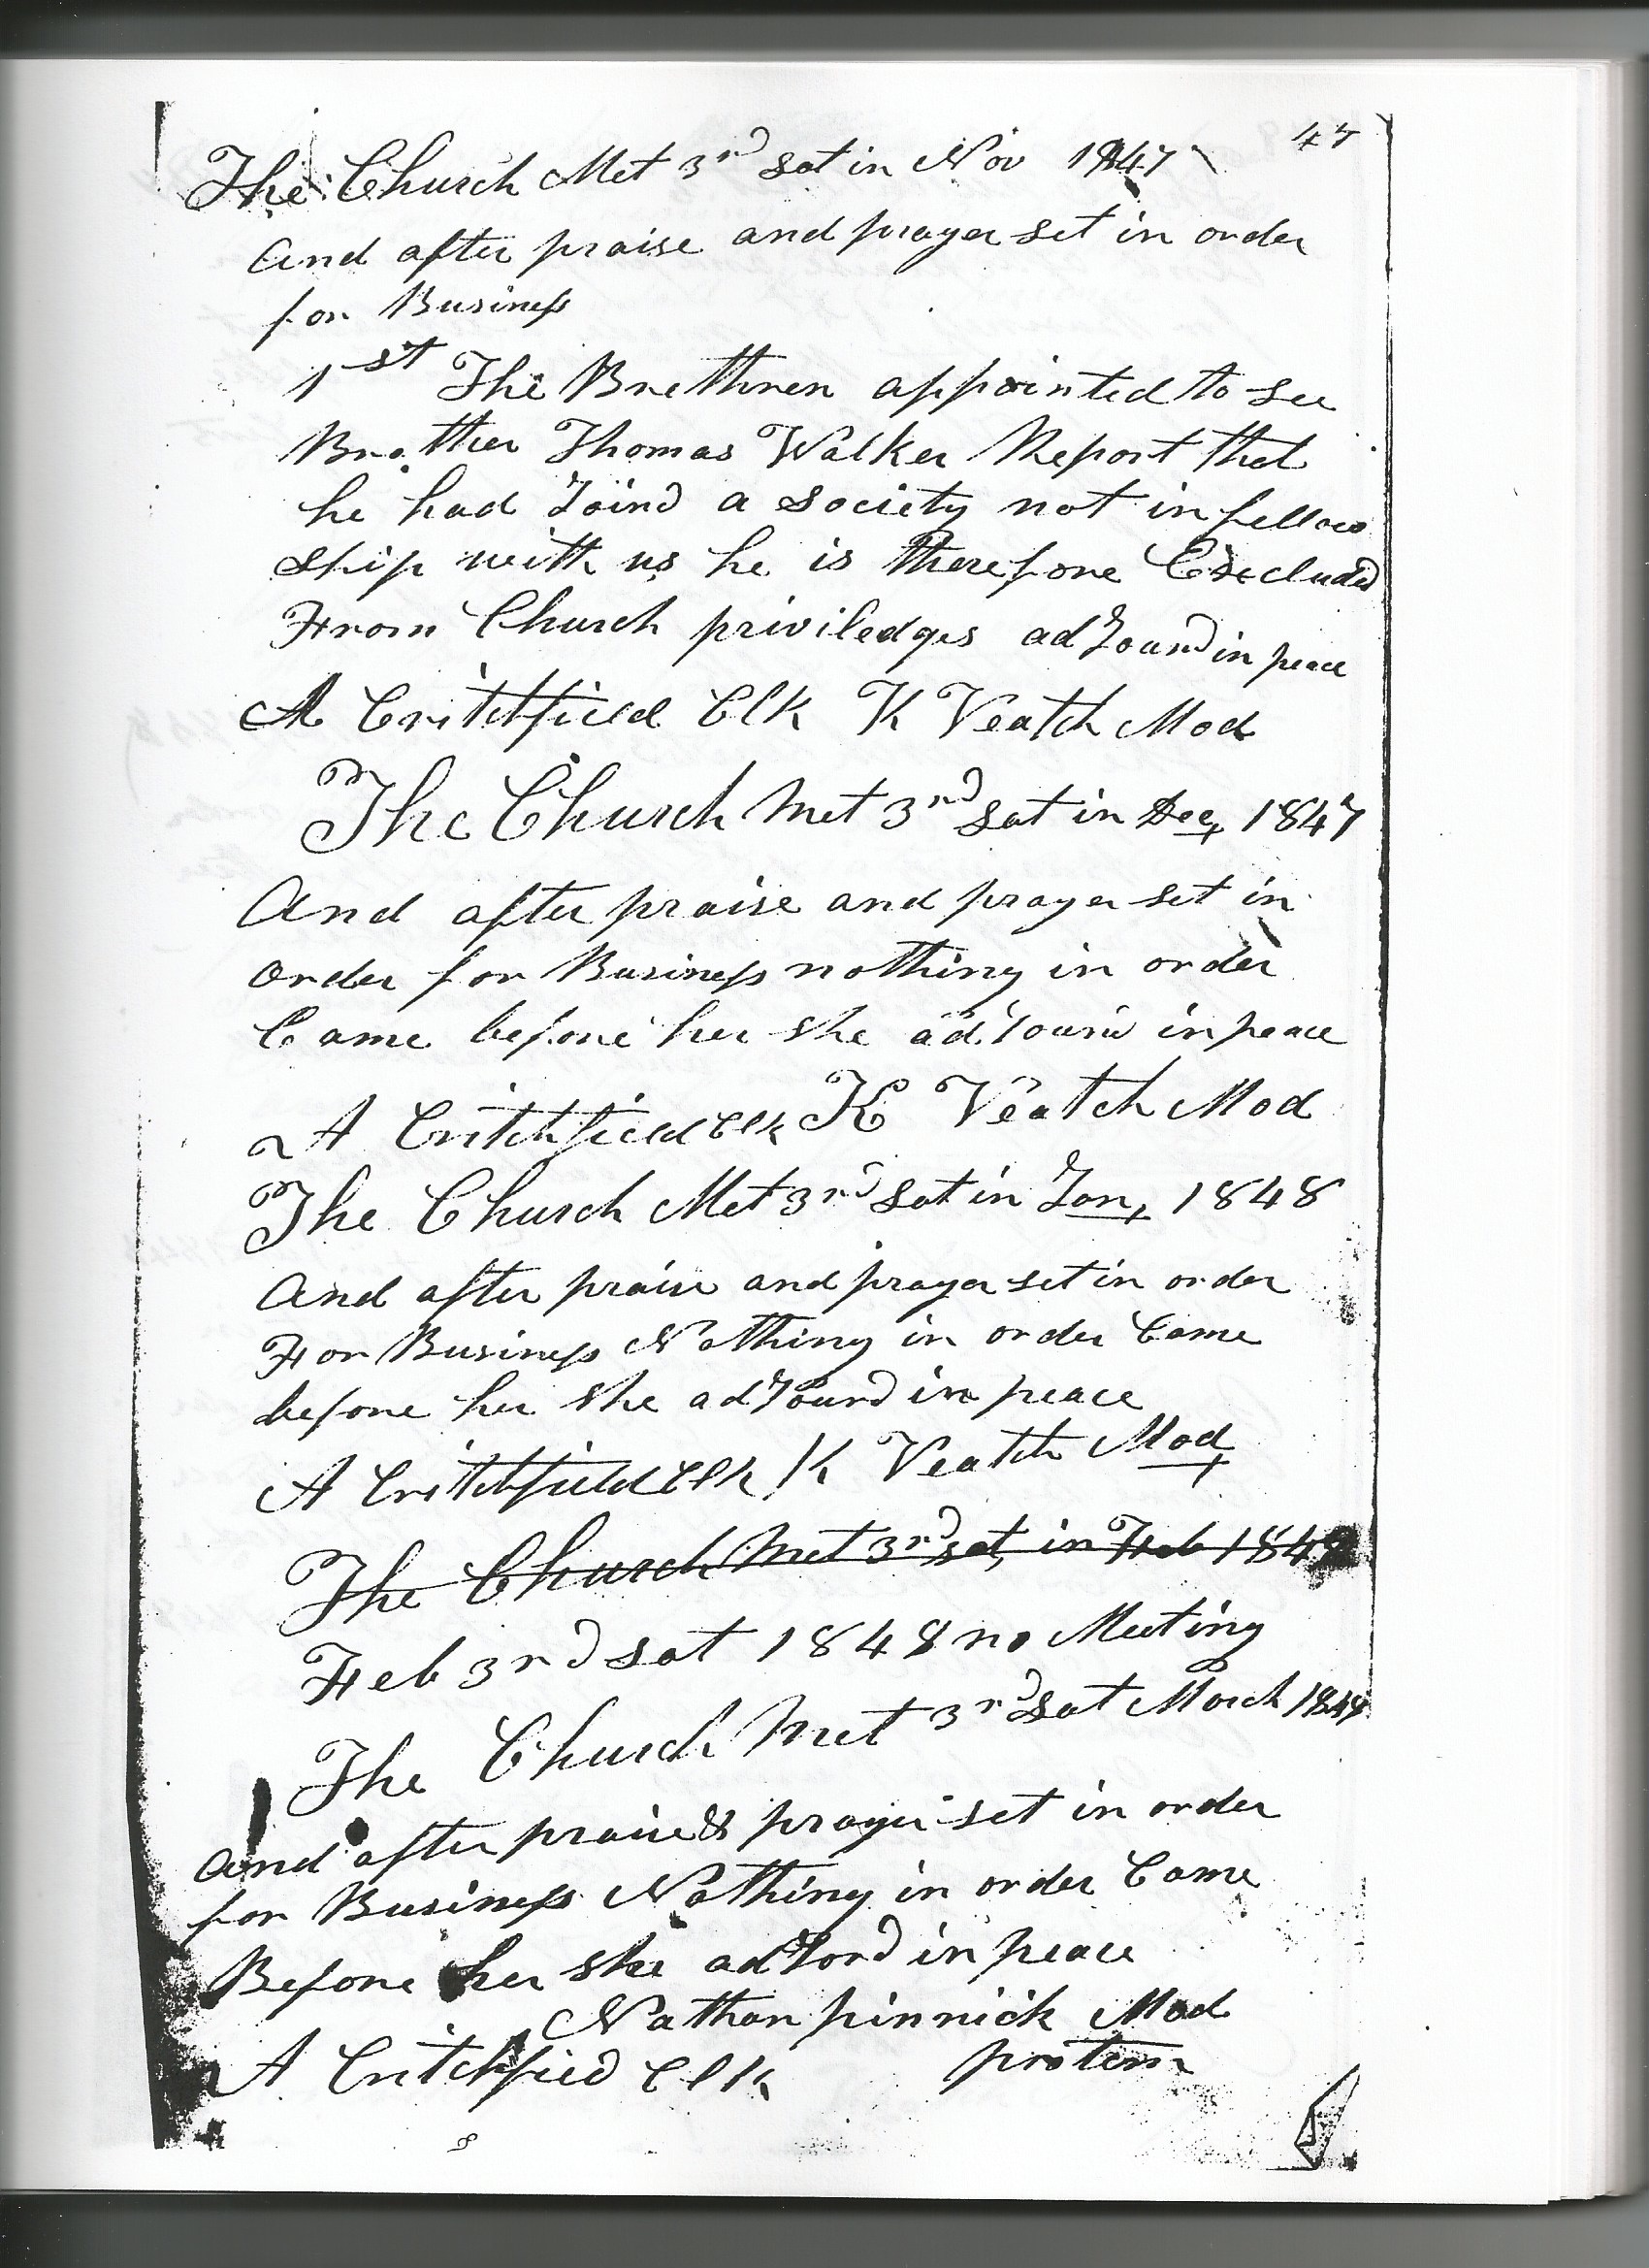 47
The Church Met 3rd sat in Nov 1847
And after praise and prayer set in order
for Business
1st The Brethren appointed to see
Brother Thomas Walker Report that
he had Joind a society not in fellow
ship with us he is therefore Excluded
From Church priviledges adJournd in peace
A Critchfield Clk K Veatch Mod
The Church Met 3rd sat in Dec 1847
And after praise and prayer set in
order for Business nothing in order
Came before her she adJournd in peace
A Critchfield Clk K Veatch Mod
The Church Met 3rd sat in Jan 1848
And after praise and prayer set in order
For Business Nothing in order Came
before her she adJournd in peace
A Critchfield Clk K Veatch Mod
The Church Met 3rd sat in Feb 1848
Feb 3rd sat 1848 no Meeting
The Church Met 3rd sat March 1848
And after praise & prayer set in order
for Business Nothing in order Came
Before her she adJord in peace
Nathan pinnick Mod
A Critchfied Clk protem